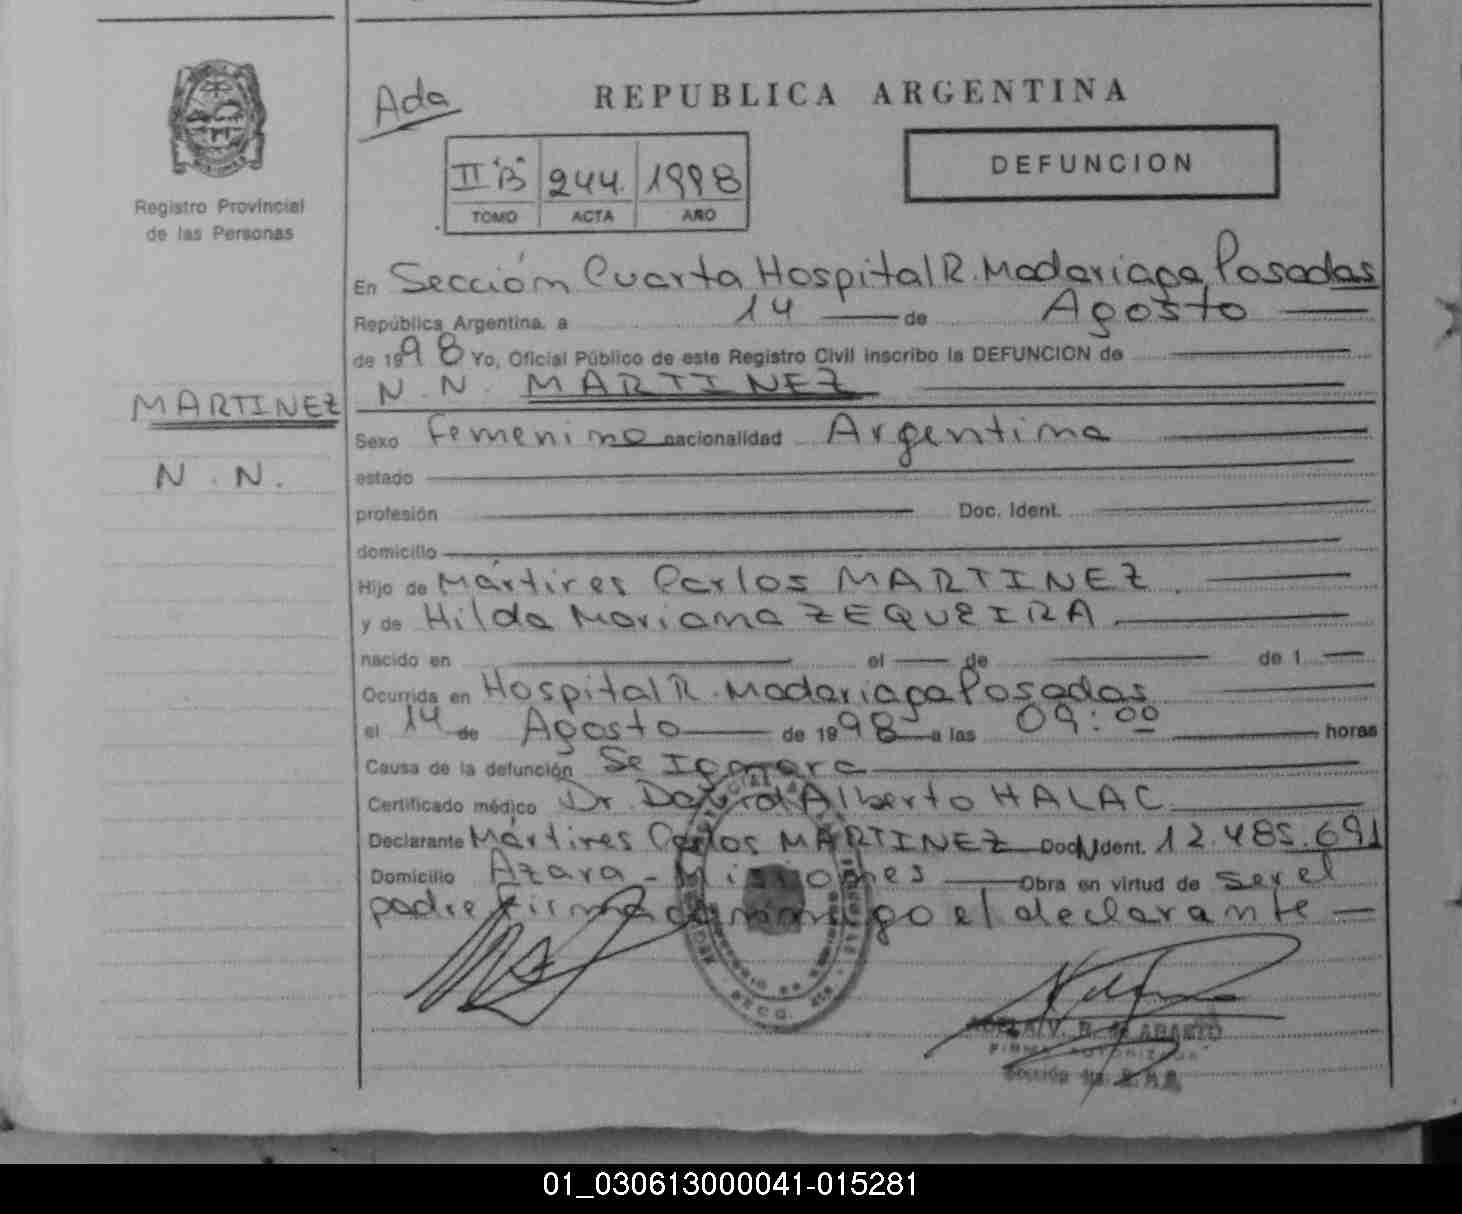 Ada
REPUBLICA ARGENTINA
II "B" 244. 1998
TOMO ACTA AÑO
DEFUNCION
Registro Provincial
de las Personas
En Sección Cuarta Hospital R. Madariaga Posadas
República Argentina, a 14 de Agosto
de 1998 Yo, Oficial Público de este Registro Civil inscribo la DEFUNCION de
N. N. MARTINEZ
MARTINEZ
N. N.
Sexo femenino nacionalidad Argentina
estado
profesión Doc. Ident.
domicilio
Hijo de Mártires Carlos MARTINEZ.
y de Hilda Mariana ZEQUEIRA
nacido en el de de 1
Ocurrida en Hospital R. Madariaga Posadas
el 14 de Agosto de 1998 a las 09:00 horas
Causa de la defunción Se Ignora
Certificado médico Dr. David Alberto HALAC
Declarante Mártires Carlos MARTINEZ Doc. Ident. 12.485.691
Domicilio Azara - Misiones Obra en virtud de ser el
padre Firma conmigo el declarante
ADELA V. B. de ABANTO
FIRMA AUTORIZADA
Sección 4ta.
01_030613000041-015281